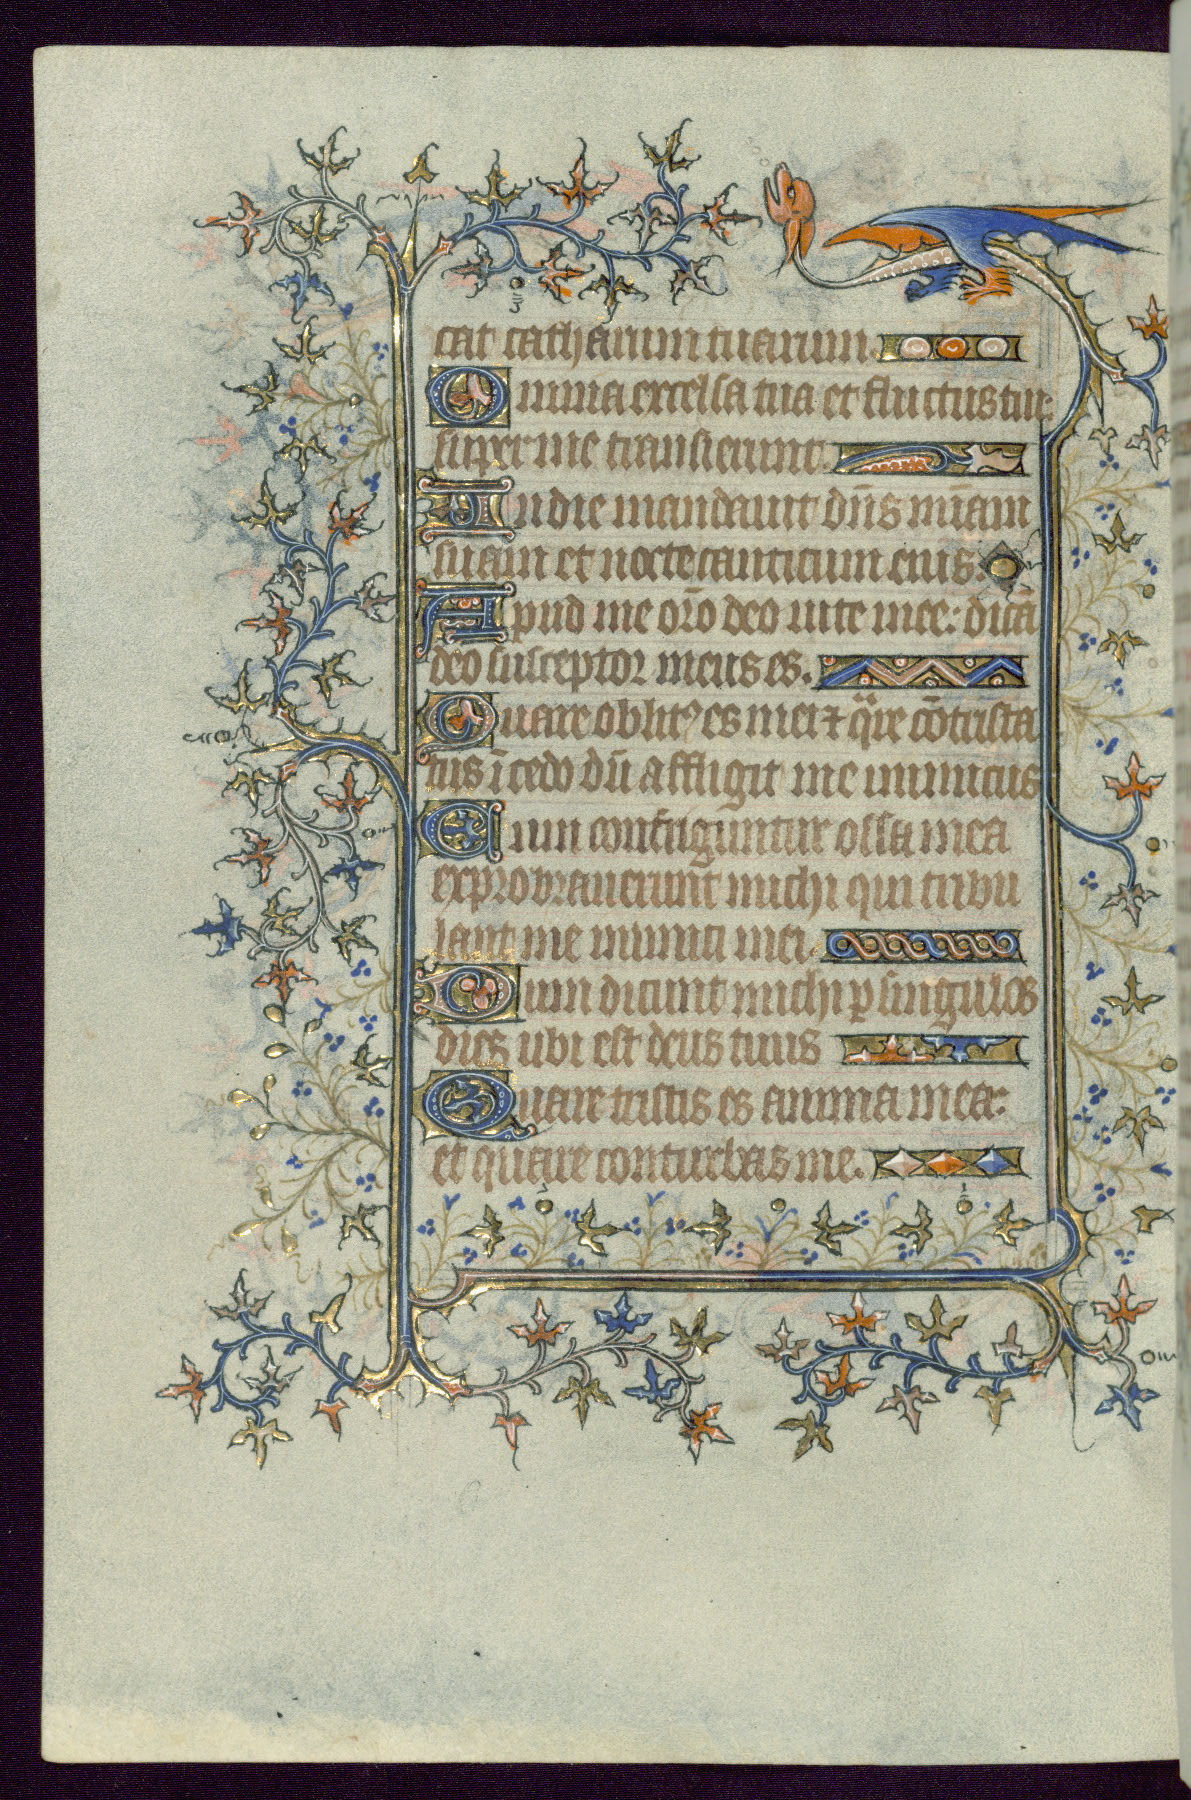 cat catharum tuarum.
Omnia excelsa tua et fluctus tui:
super me transierunt.
In die mandauit dn̄s mīam
suam et nocte canticum eius.
Apud me oro̅ deo uite mee: dicā
deo susceptor meus es.
Quare oblitꝰ es mei ⁊ q̈re cōtrista
tus īcedo dū affligit me inimicus
Cum confriguntur ossa mea
exprobrauerunt michi qui tribu
lant me inimici mei.
Dum dicunt michi ꝑ singulos
dies ubi est deus tuus
Quare tristis es anima mea:
et quare conturbas me.